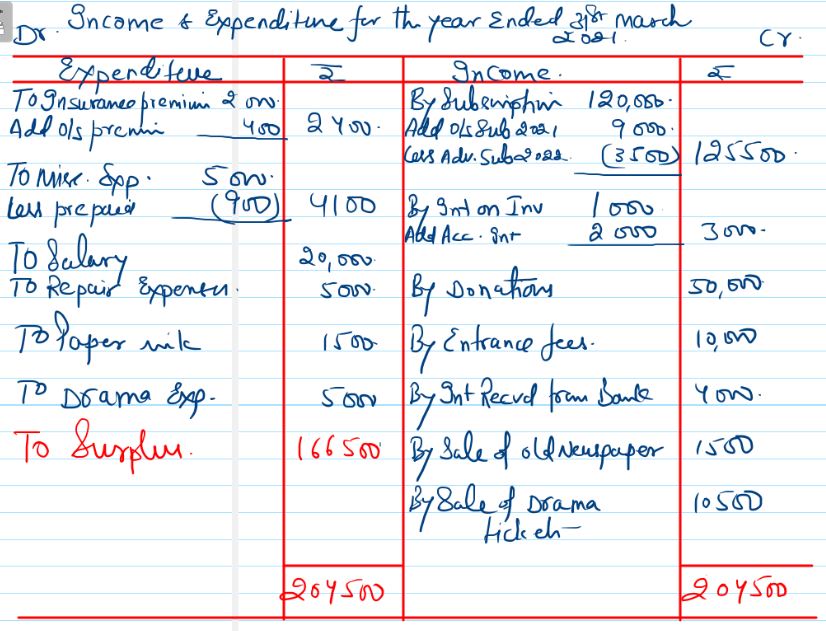 Dr. Income & Expenditure for the year Ended 31st march 2021. Cr.
Expenditure ₹ Income. ₹
To Insurance premium 2000. By Subscription 120,000.
Add o/s premin 400 2400. Add o/s Sub 2021 9000.
Less Adv. Sub 2022. (3500) 125500.
To Misc. Exp. 5000.
Less prepaid (900) 4100 By Int on Inv 1000
Add Acc. Int 2000 3000.
To Salary 20,000.
To Repair Expenses. 5000. By Donations 50,000
To Paper ink 1500. By Entrance fees. 10,000
To Drama Exp. 5000 By Int Recvd from Bank 4000.
To Surplus. 166500 By Sale of old Newspaper 1500
By Sale of Drama 10500
tickets
204500 204500